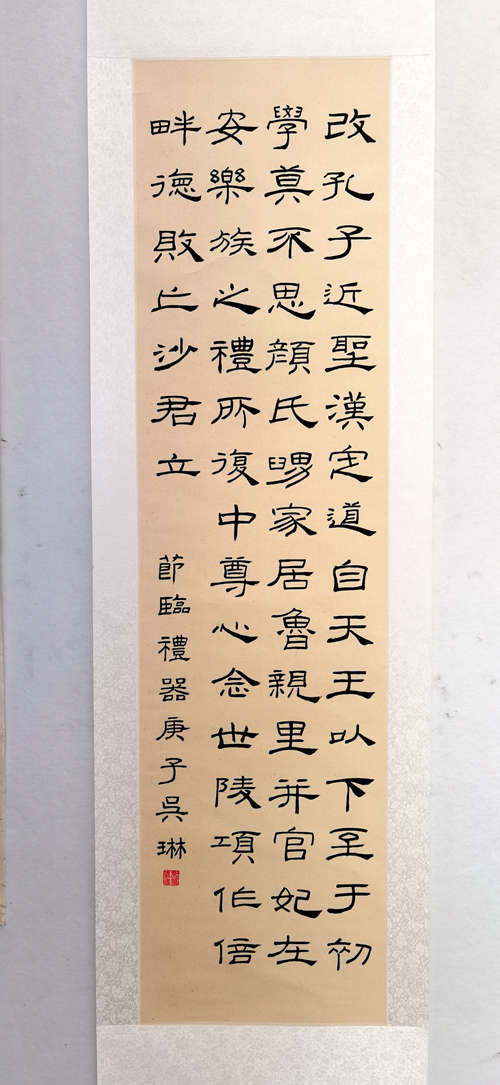 改孔子近聖漢定道自天王以下至于初
學莫不思顏氏舅家居魯親里并官妃在
安樂族之禮所復中尊心念世陵項作倍
畔德敗亡沙君立
節臨禮器庚子吳琳